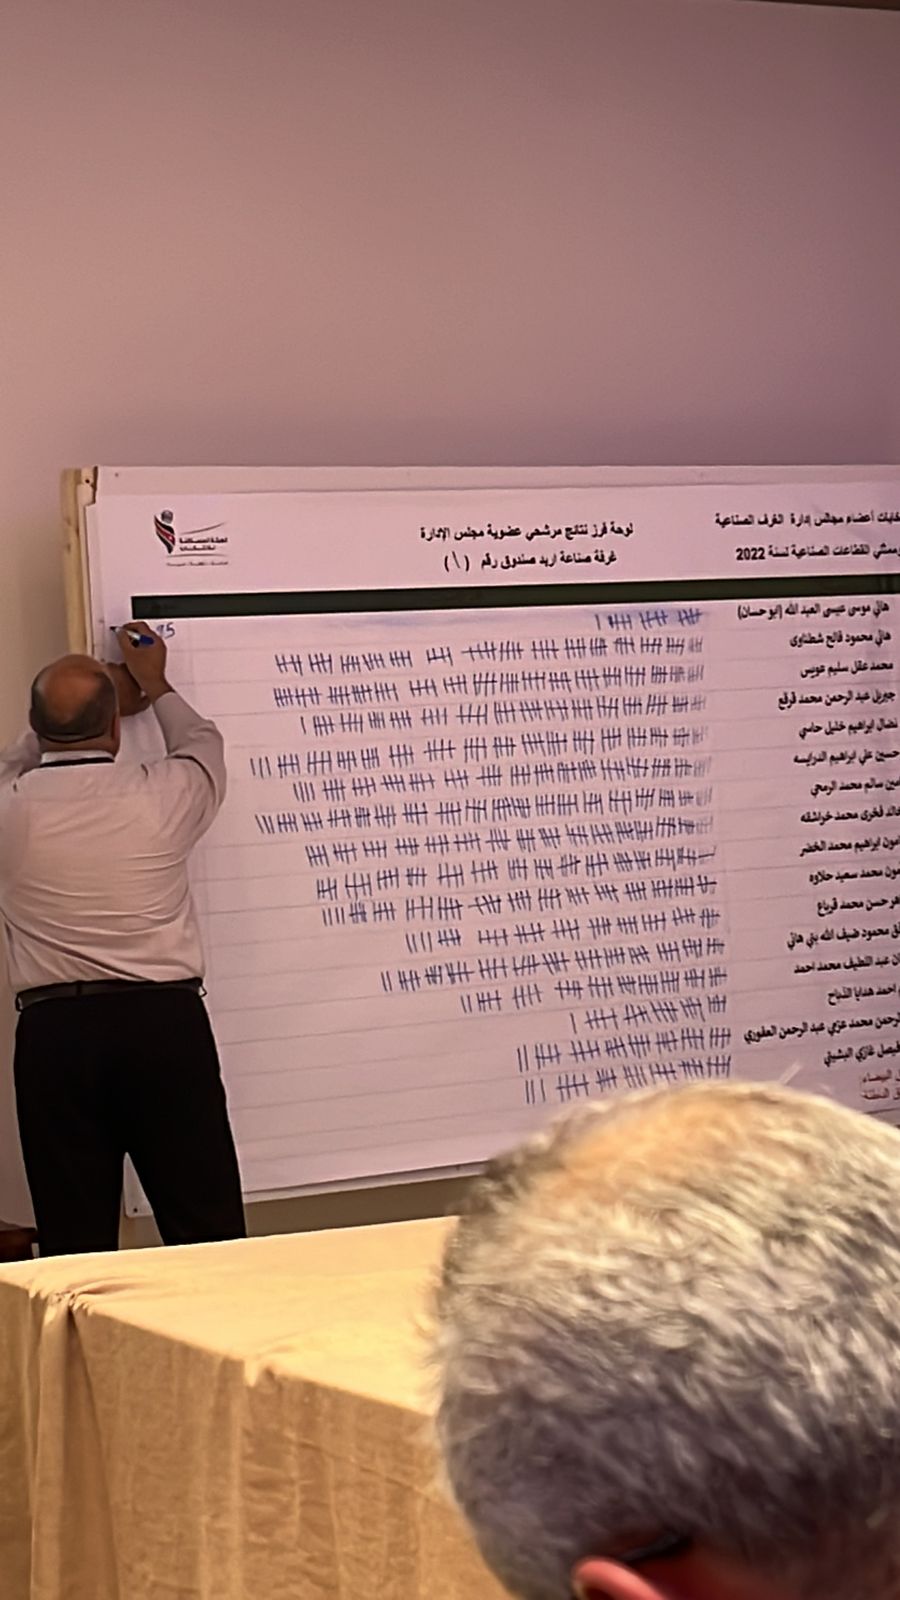 لوحة فرز نتائج مرشحي عضوية مجلس الإدارة
غرفة صناعة اربد صندوق رقم (١)
أعضاء مجالس إدارة الغرف الصناعية
وممثلي القطاعات الصناعية لسنة 2022
هاني موسى عيسى العبد الله (ابو حسان)
هاني محمود فالح شطناوي
محمد عقل سليم عويس
جبريل عبد الرحمن محمد قرقع
نضال ابراهيم خليل حامي
حسين علي ابراهيم الدرابسه
سالم محمد الرمحي
خالد فخري محمد خراشقه
ابراهيم محمد الخضر
محمد سعيد حلاوه
حسن محمد قرباع
محمود ضيف الله بني هاني
عبد اللطيف محمد احمد
احمد هدايا الذباح
الرحمن محمد عزمي عبد الرحمن العفوري
فيصل غازي البشيتي
البيضاء